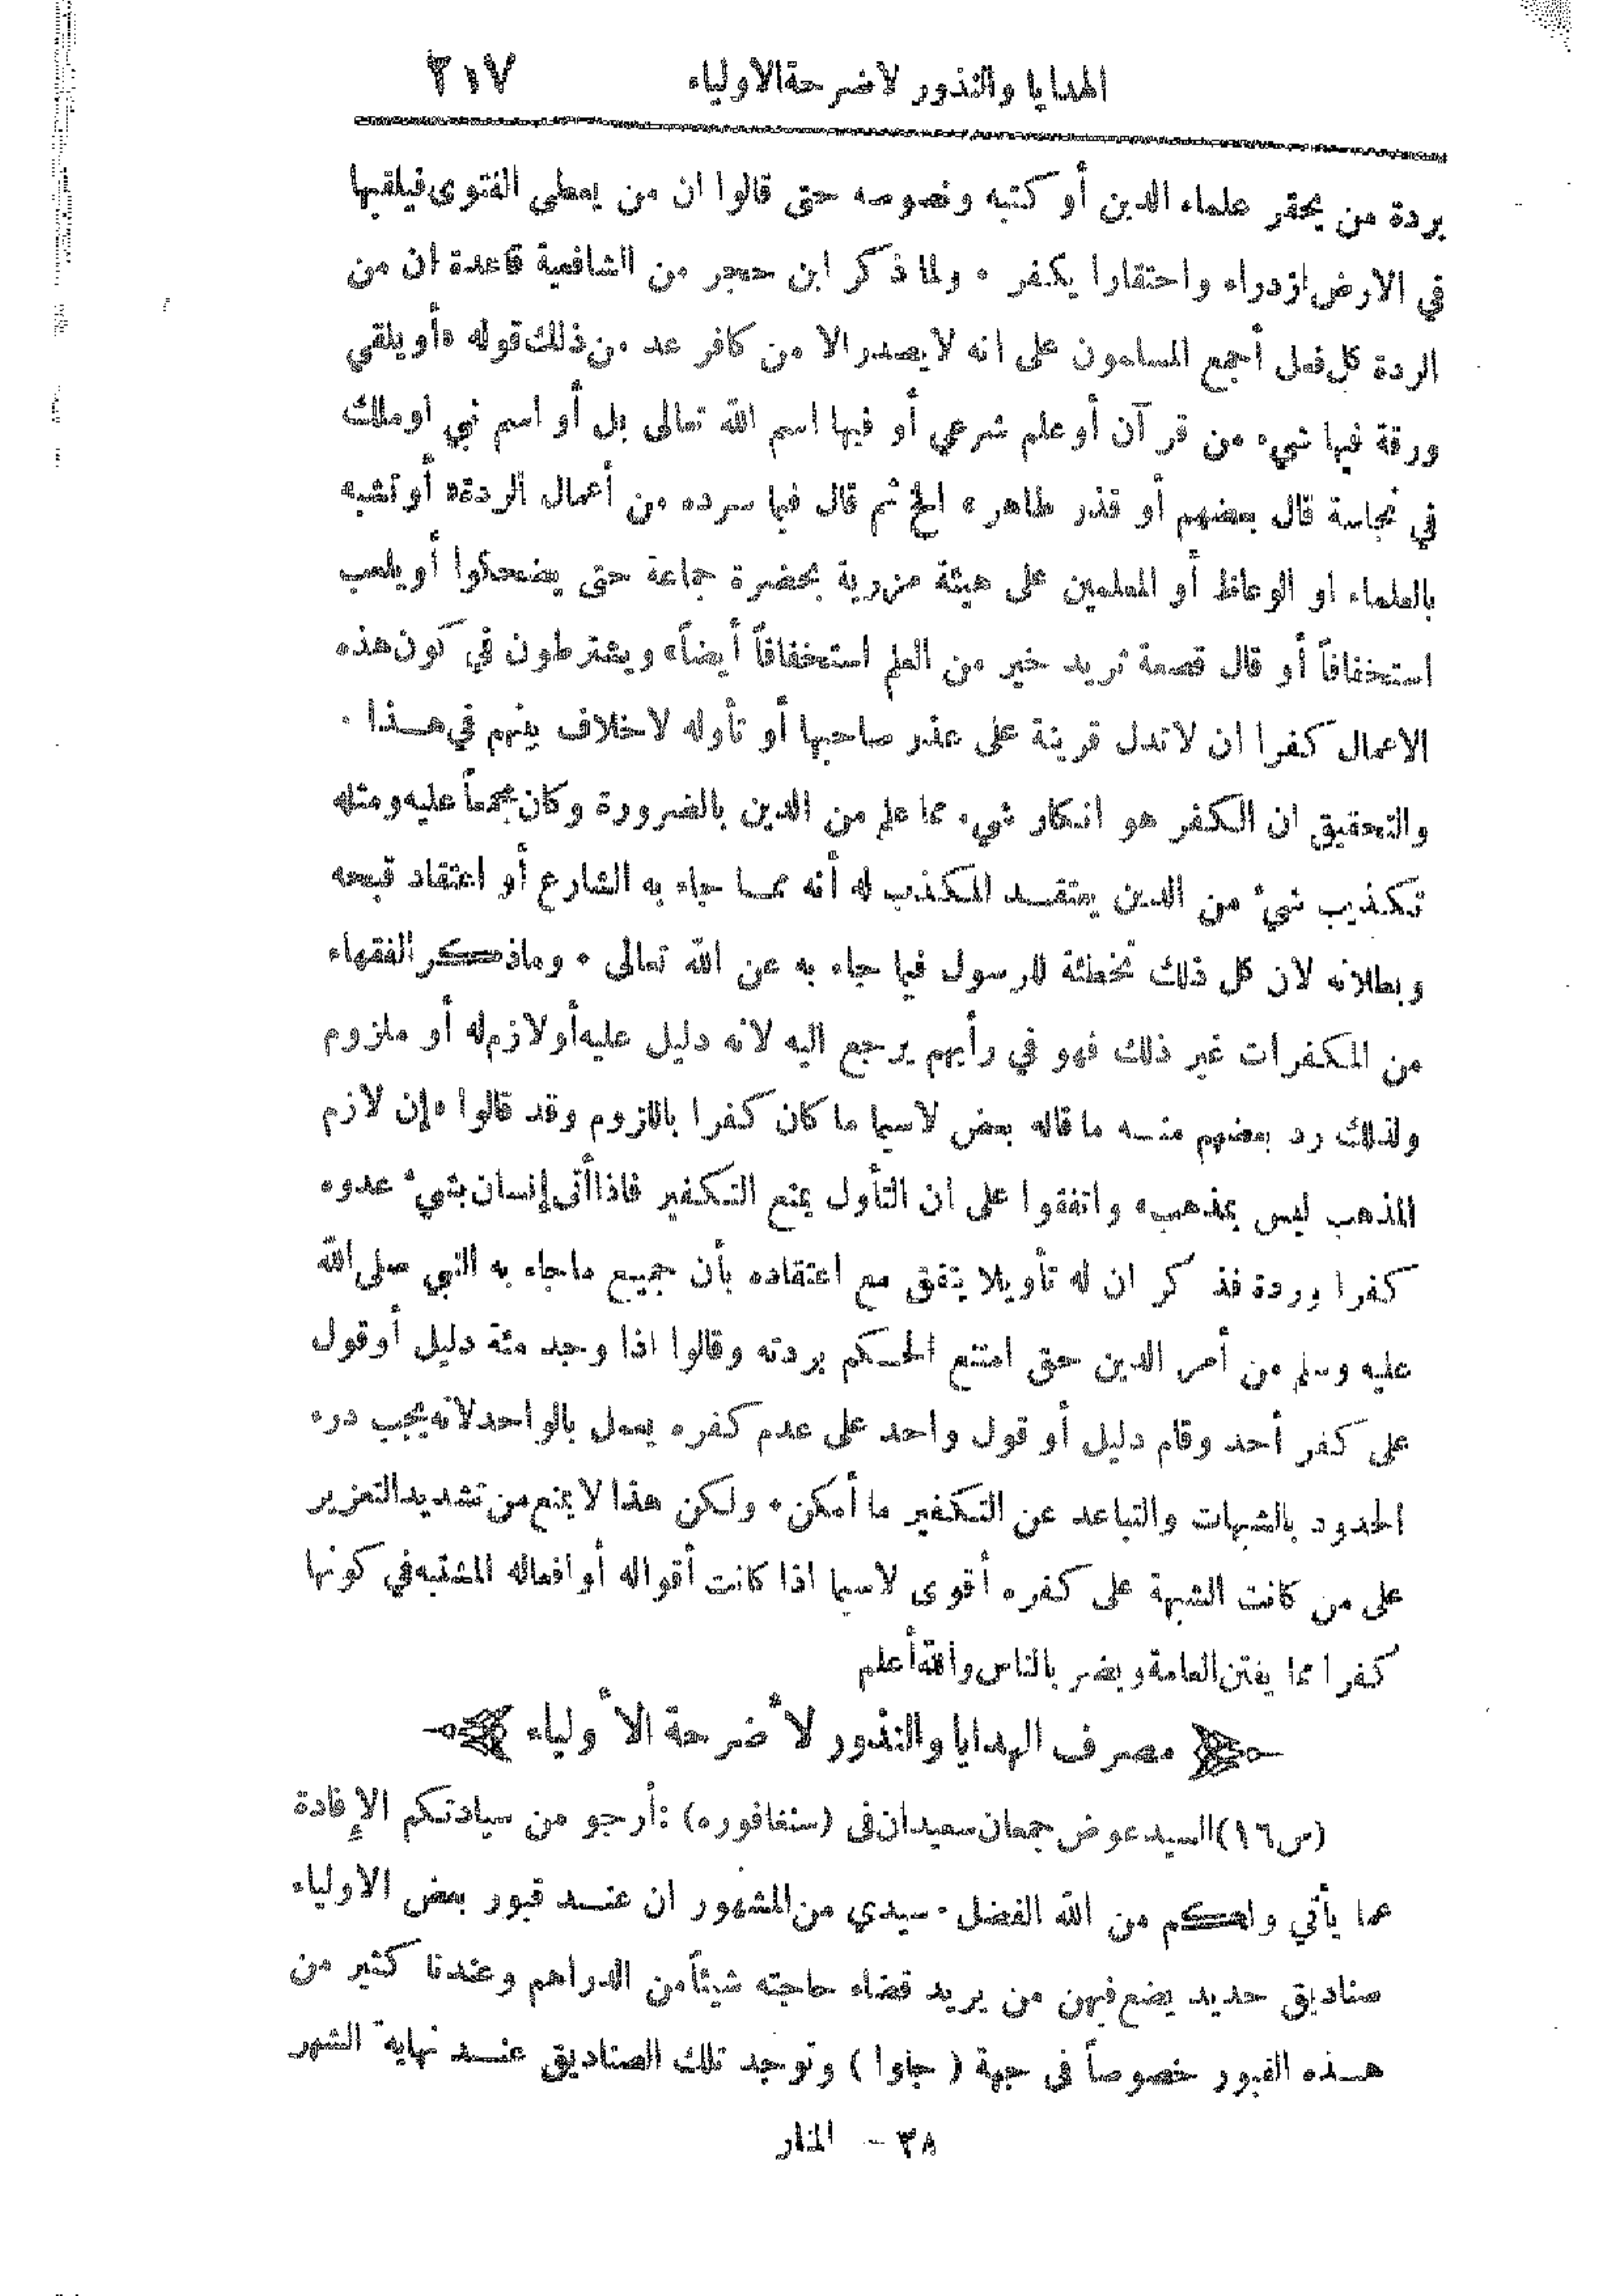 الهدايا والنذور لاضرحة الاولياء ٢١٧
بردة من يحقر علماء الدين أو كتبه ونصوصه حتى قالوا ان من يعطى الفتوى فيلقيها
في الارض ازدراء واحتقارا يكفر . ولما ذكر ابن حجر من الشافعية قاعدة ان من
الردة كل فعل أجمع المسلمون على انه لا يصدر الا من كافر عد من ذلك قوله «أو يلقي
ورقة فيها شيء من قرآن أو علم شرعي أو فيها اسم الله تعالى بل أو اسم نبي او ملك
في نجاسة قال بعضهم أو قذر طاهر» الخ ثم قال فيما سرده من أعمال الردة «أو تشبه
بالعلماء او الوعاظ أو المعلمين على هيئة مزرية بحضرة جماعة حتى يضحكوا أو يلعب
استخفافاً أو قال قصعة ثريد خير من العلم استخفافاً أيضاً» ويشترطون في كون هذه
الاعمال كفرا ان لا تدل قرينة على عذر صاحبها أو تأوله لا خلاف بينهم في هـذا .
والتحقيق ان الكفر هو انكار شيء مما علم من الدين بالضرورة وكان مجمعاً عليه ومثله
تكذيب شيء من الدين يعتقـد المكذب له أنه ممـا جاء به الشارع أو اعتقاد قبحه
وبطلانه لان كل ذلك تخطئة للرسول فيما جاء به عن الله تعالى . وماذكر الفقهاء
من المكفرات غير ذلك فهو في رأيهم يرجع اليه لانه دليل عليه أو لازم له أو ملزوم
ولذلك رد بعضهم منـه ما قاله بعض لاسيما ما كان كفرا باللزوم وقد قالوا «إن لازم
المذهب ليس بمذهب» واتفقوا على ان التأول يمنع التكفير فاذا أتى إنسان بشيء عدوه
كفرا وردة فذكر ان له تأويلا يتفق مع اعتقاده بأن جميع ماجاء به النبي صلى الله
عليه وسلم من أمر الدين حق امتنع الحـكم بردته وقالوا اذا وجد مئة دليل أو قول
على كفر أحد وقام دليل أو قول واحد على عدم كفره يعمل بالواحد لانه يجب درء
الحدود بالشبهات والتباعد عن التكفير ما أمكن . ولكن هذا لا يمنع من تشديد التعزير
على من كانت الشبهة على كفره أقوى لاسيما اذا كانت أقواله أو افعاله المشتبه في كونها
كفرا مما يفتن العامة ويضر بالناس والله أعلم
مصرف الهدايا والنذور لأضرحة الأولياء
(س١٦) السيد عوض جمعان سعيدان فى (سنغافوره) : أرجو من سيادتكم الإفادة
عما يأتي ولكـم من الله الفضل . سيدي من المشهور ان عنـد قبور بعض الاولياء
صناديق حديد يضع فيهن من يريد قضاء حاجته شيئاً من الدراهم وعندنا كثير من
هـذه القبور خصوصاً فى جهة (جاوا) وتوجد تلك الصناديق عنـد نهاية الشهر
٣٨ — المنار